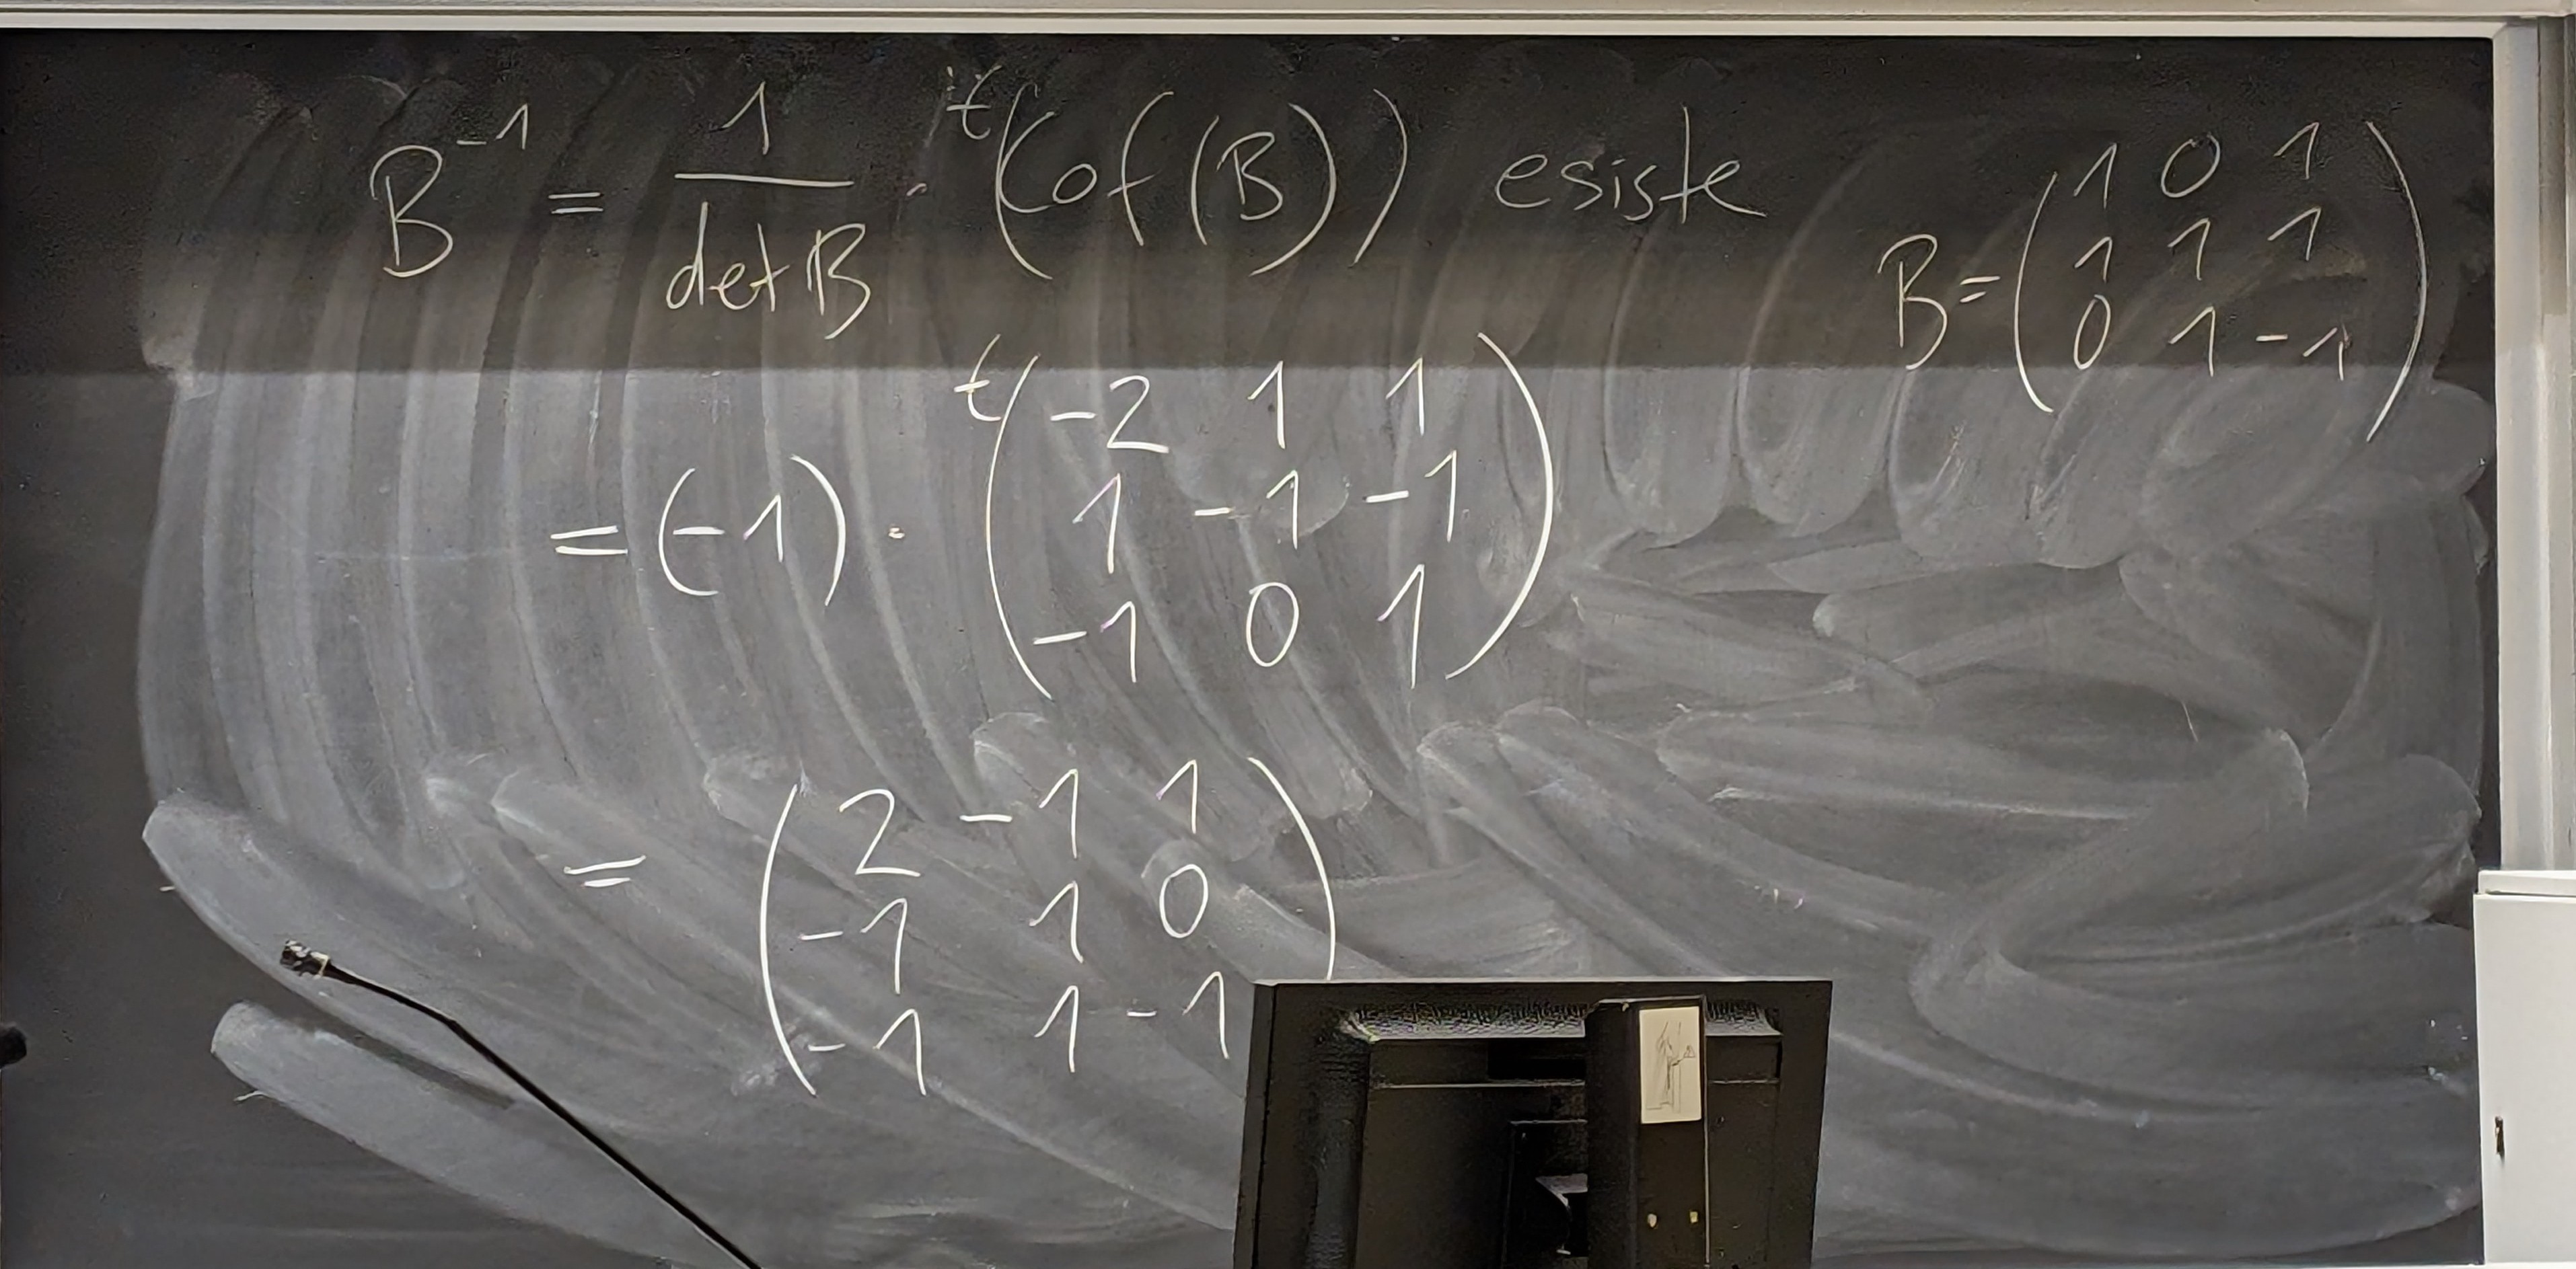 B⁻¹ = 1/det B · ᵗ(Cof(B)) esiste
B = ( 1 0 1
1 1 1
0 1 -1 )
= (-1) · ᵗ( -2 1 1
1 -1 -1
-1 0 1 )
= ( 2 -1 1
-1 1 0
-1 1 -1 )